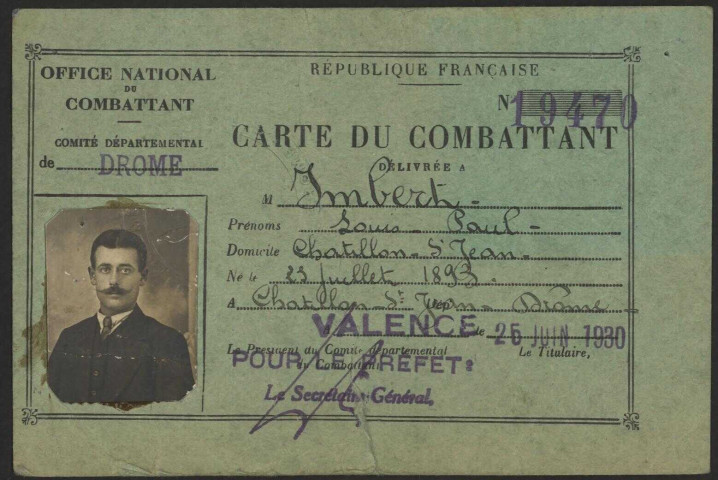 OFFICE NATIONAL
DU
COMBATTANT
COMITÉ DÉPARTEMENTAL
de DROME
RÉPUBLIQUE FRANÇAISE
N° 19470
CARTE DU COMBATTANT
DÉLIVRÉE A
M Imbert
Prénoms Louis Paul
Domicile Chatillon St Jean
Né le 23 Juillet 1893
A Chatillon St Jean Dép Drôme
VALENCE le 25 JUIN 1930
Le Président du Comité départemental
du Combattant
Le Titulaire,
POUR LE PREFET:
Le Secrétaire Général,